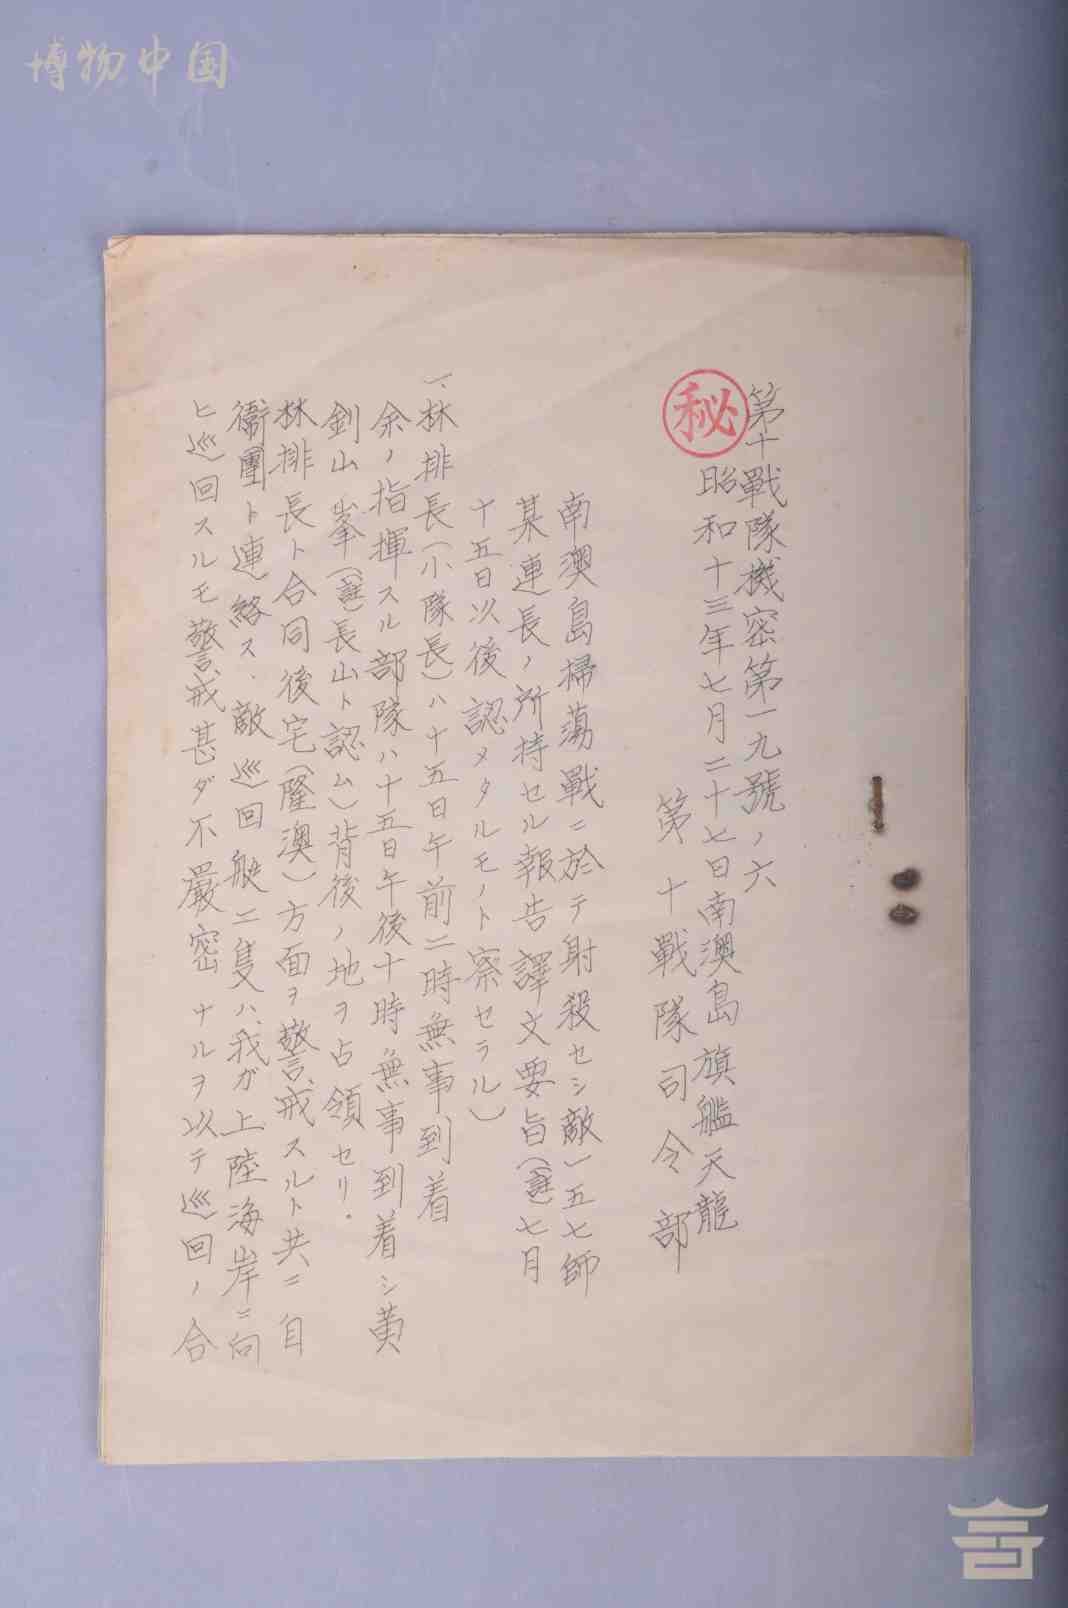 博物中国
第十戰隊機密第一九號ノ六
㊙
昭和十三年七月二十七日南澳島旗艦天龍
第十戰隊司令部
南澳島掃蕩戰ニ於テ射殺セシ敵一五七師
某連長ノ所持セル報告譯文要旨(註)七月
十五日以後認メタルモノト察セラル)
一、林排長(小隊長)ハ十五日午前二時無事到着
余ノ指揮スル部隊ハ十五日午後十時無事到着シ黄
釗山峯(註)長山ト認ム)背後ノ地ヲ占領セリ.
林排長ト合同後宅(隆澳)方面ヲ警戒スルト共ニ自
衞團ト連絡ス.敵巡回艇二隻ハ我ガ上陸海岸ニ向
ヒ巡回スルモ警戒甚ダ不嚴密ナルヲ以テ巡回ノ合